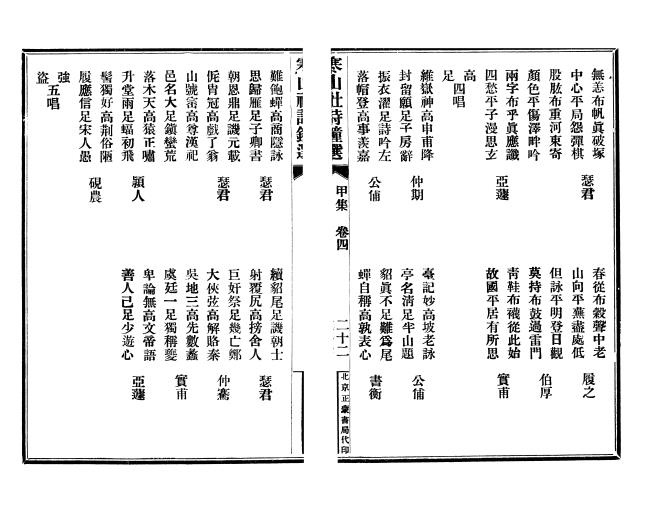 無恙布帆眞破塚
中心平局怨彈棋
瑟君
春從布穀聲中老
山向平蕪盡處低
履之
股肱布重河東寄
顏色平傷澤畔吟
但詠平明登日觀
莫持布鼓過雷門
伯厚
兩字布乎眞應讖
四愁平子漫思玄
亞蘧
靑鞋布襪從此始
故國平居有所思
實甫
高足 四唱
維嶽神高申甫降
封留願足子房辭
仲期
臺記妙高坡老詠
亭名淸足半山題
公俌
振衣濯足詩吟左
落帽登高事羨嘉
公俌
貂眞不足難爲尾
蟬自稱高孰表心
書衡
寒山社詩鐘選
甲集 卷四
二十二
北京正蒙書局代印
難飽蟬高商隱詠
思歸雁足子卿書
瑟君
續貂尾足譏朝士
射覆尻高搒舍人
瑟君
朝恩鼎足譏元載
侂冑冠高戲了翁
瑟君
巨奸祭足幾亡鄭
大俠弦高解賂秦
仲騫
山號嵩高尊漢祀
邑名大足鎭蠻荒
吳地三高先數蠡
虞廷一足獨稱夔
實甫
落木天高猿正嘯
升堂雨足蝠初飛
穎人
卑論無高文帝語
善人已足少遊心
亞蘧
髻獨好高荆俗陋
履應信足宋人愚
硯農
強盜 五唱